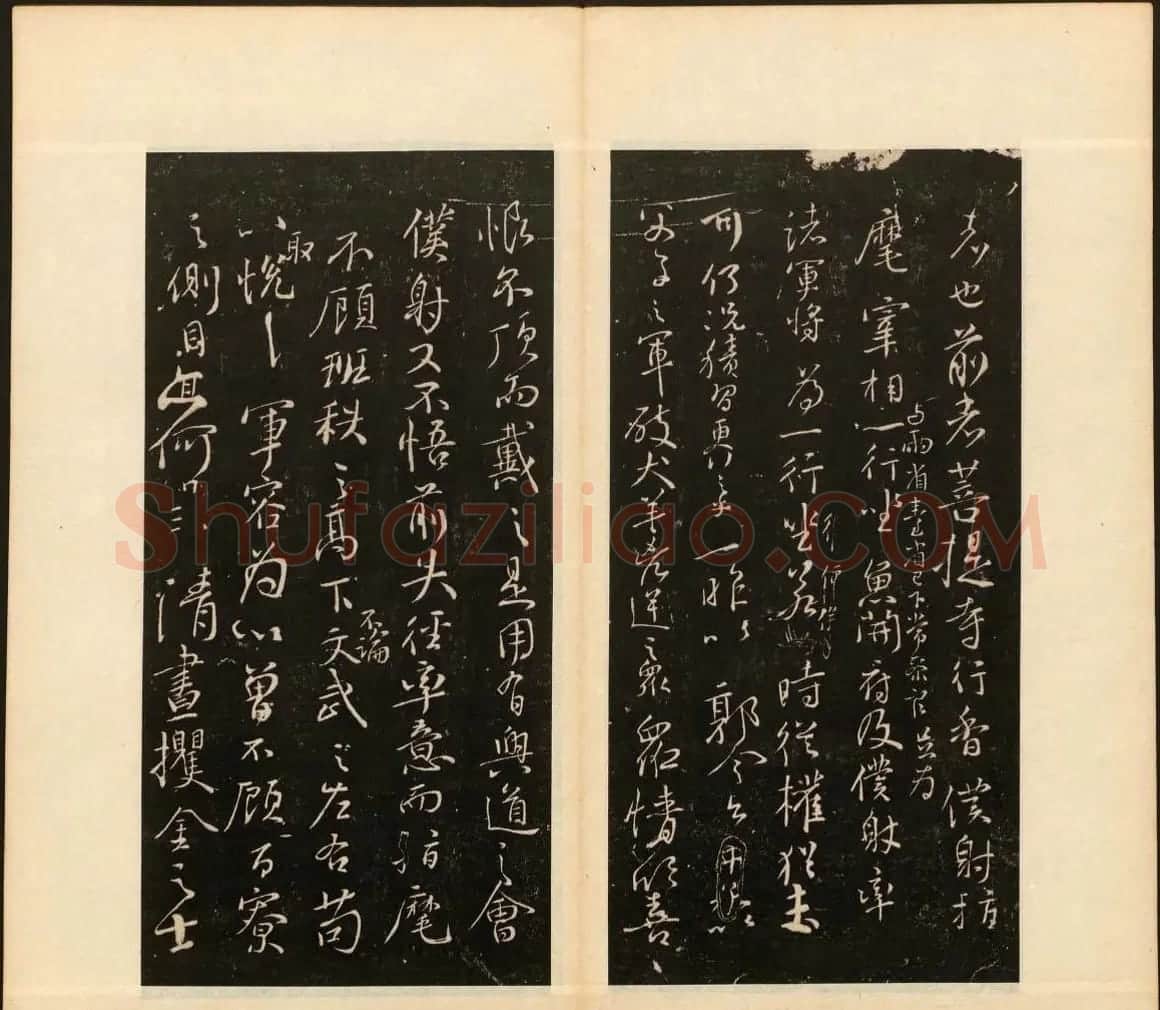 者也前者菩提寺行香僕射指
麾宰相與兩省臺省已下常參官並為一行坐魚開府及僕射率
諸軍將為一行坐若一時從權猶未
可何況積習更行之乎一昨以郭令公以
父子之軍破犬羊凶逆之眾眾情欣喜
恨不頂而戴之是用有興道之會
僕射又不悟前失徑率意而指麾
不顧班秩之高下不論文武之左右苟
以取悅軍容為心曾不顧百寮
之側目亦何異清晝攫金之士
Shufaziliao.COM